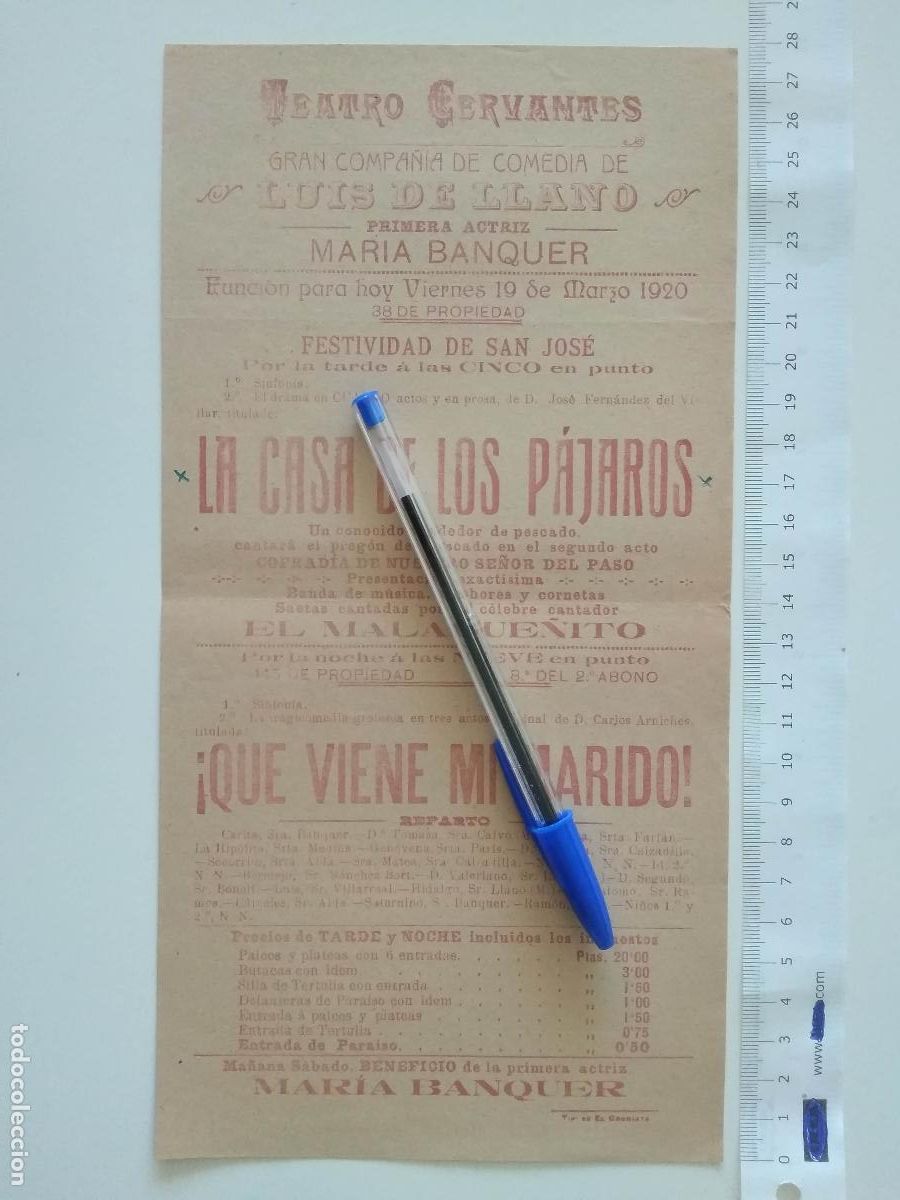 TEATRO CERVANTES
GRAN COMPAÑIA DE COMEDIA DE
LUIS DE LLANO
PRIMERA ACTRIZ
MARIA BANQUER
Función para hoy Viernes 19 de Marzo 1920
38 DE PROPIEDAD
FESTIVIDAD DE SAN JOSÉ
Por la tarde á las CINCO en punto
1.º Sinfonía.
2.º El drama en actos y en prosa, de D. José Fernández del Vi-
llar, titulado:
LA CASA DE LOS PÁJAROS
Un conocido dedor de pescado,
cantará el pregón del scado en el segundo acto
COFRADÍA DE NUESTRO SEÑOR DEL PASO
Presentación exactísima
Banda de música, bores y cornetas
Saetas cantadas por célebre cantador
EL MALAGUEÑITO
Por la noche á las NUEVE en punto
DE PROPIEDAD 8.ª DEL 2.º ABONO
1.º Sinfonía.
2.º La tragicomedia grotesca en tres actos inal de D. Carlos Arniches,
titulada
¡QUE VIENE MI MARIDO!
REPARTO
Carita, Sra. Banquer.—D.ª Tomasa, Sra. Calvo Srta. Farfán.—
La Hipólita, Srta. Genoveva, Srta. París.— Sra. Calzadilla.
—Socorrito, Srta. Alba.—Sra. Matea, Sra. Calzadilla.— N. N.—Id. 2.ª
N. N.—Bermejo, Sr. Sánchez Bort.—D. Valeriano, Sr. —D. Segundo,
Sr. Benoit.—Luis, Sr. Villarreal.—Hidalgo, Sr. Llano Sr. Ra-
mos.—Cárceles, Sr. Alba.—Saturnino, S. Banquer.—Ramón, —Niños 1.º y
2.º, N. N.
Precios de TARDE y NOCHE incluidos los impuestos
Palcos y plateas con 6 entradas. Ptas. 20'00
Butacas con idem. „ 3'00
Silla de Tertulia con entrada „ 1'50
Delanteras de Paraíso con idem „ 1'00
Entrada á palcos y plateas „ 1'50
Entrada de Tertulia „ 0'75
Entrada de Paraiso. „ 0'50
Mañana Sábado, BENEFICIO de la primera actriz
MARÍA BANQUER
Tip. de El Cronista
todocoleccion
www. .com
0 1 2 3 4 5 6 7 8 9 10 11 12 13 14 15 16 17 18 19 20 21 22 23 24 25 26 27 28 2